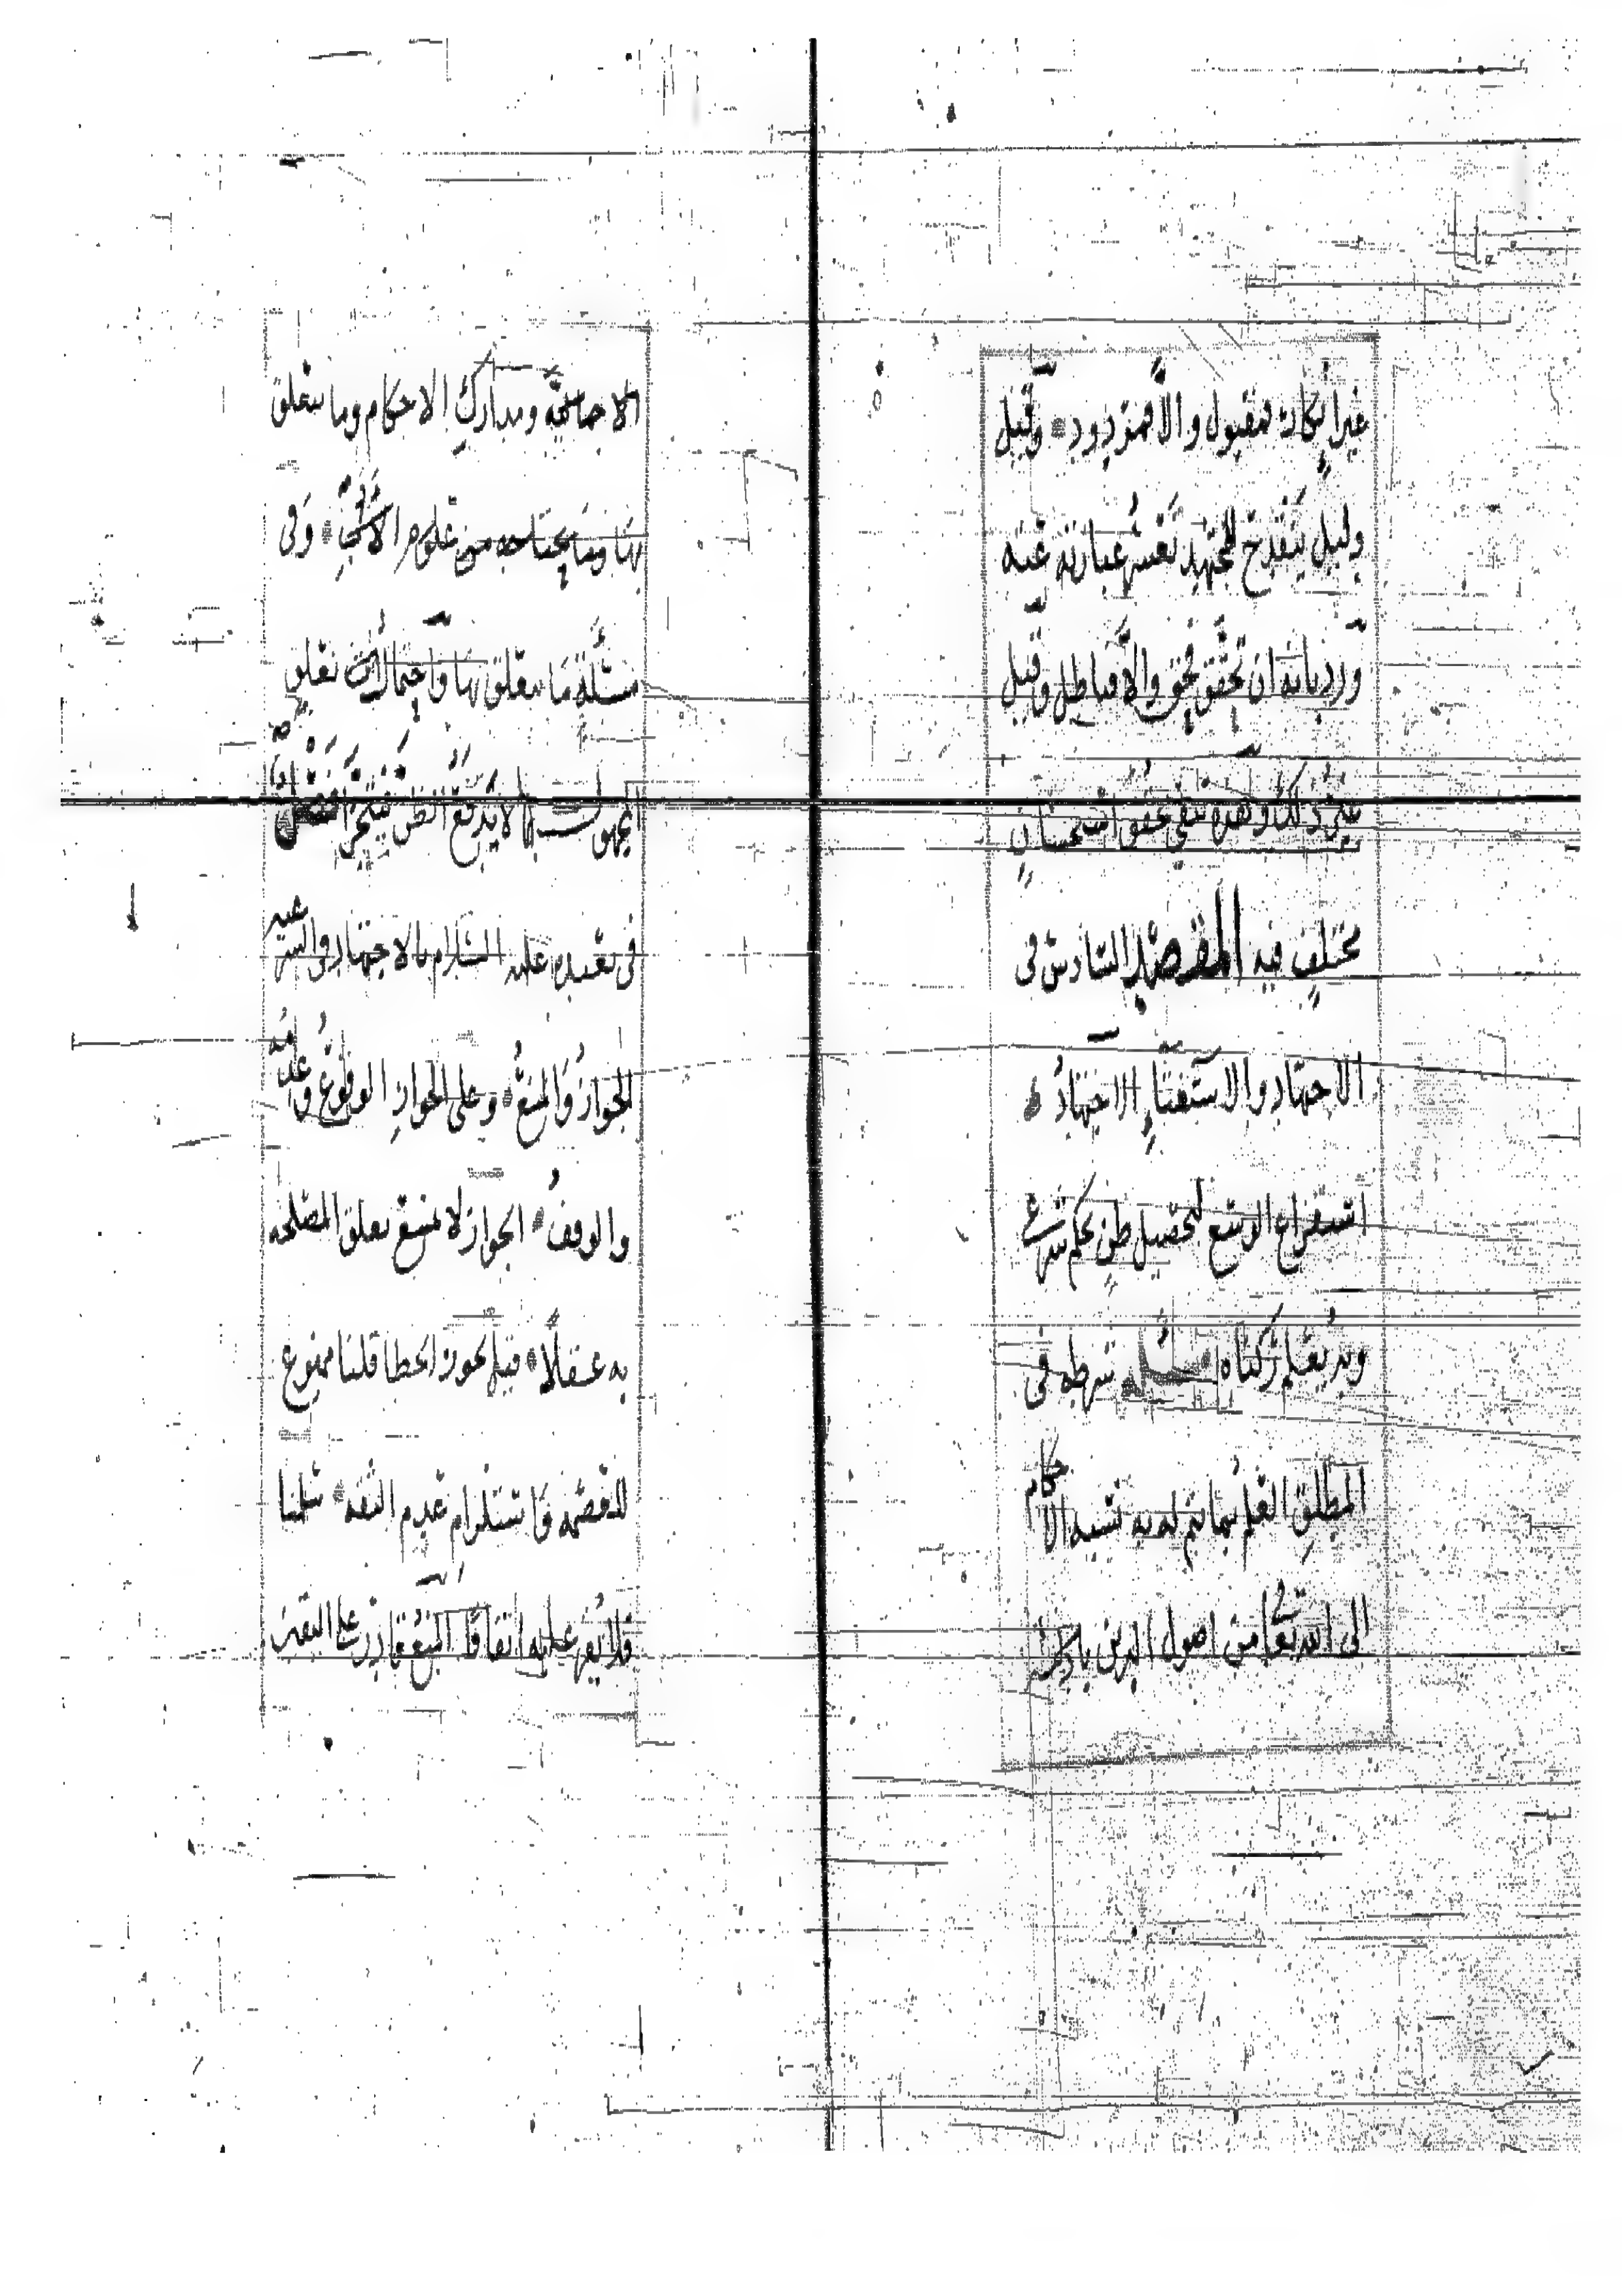 غير انكاره فمقبول والا فمردود وقيل
دليل ينقدح للمجتهد تعسر عبارته عنه
ورد بانه ان تحقق فحق والا فباطل وقيل
غير ذلك وهذه تنفي تحقق استحسان
مختلف فيه المقصد السادس في
الاجتهاد والاستفتاء الاجتهاد
استفراغ الوسع لتحصيل ظن بحكم شرعي
وبه يعلم ركناه شرطه في
المطلق العلم بما تتم له به نسبة الاحكام
الى الله تعا من اصول الدين بادلته
الاجمالية ومدارك الاحكام وما يتعلق
بها وما يحتاجه من علوم الادب وفي
مسئلة ما يتعلق بها واحتمال تعلق
المجهول بها لا يدفع الظن فيتجزا
في تعبده عليه السلام بالاجتهاد
الجواز والمنع وعلى الجواز الوقوع وعدمه
والوقف الجواز لا يمتنع تعلق المصلحة
به عقلا قيل يجوز الخطا قلنا ممنوع
للعصمة واستلزام عدم الثقة سلمنا
فلا يقر عليه اتفاقا المنع قادر على اليقين